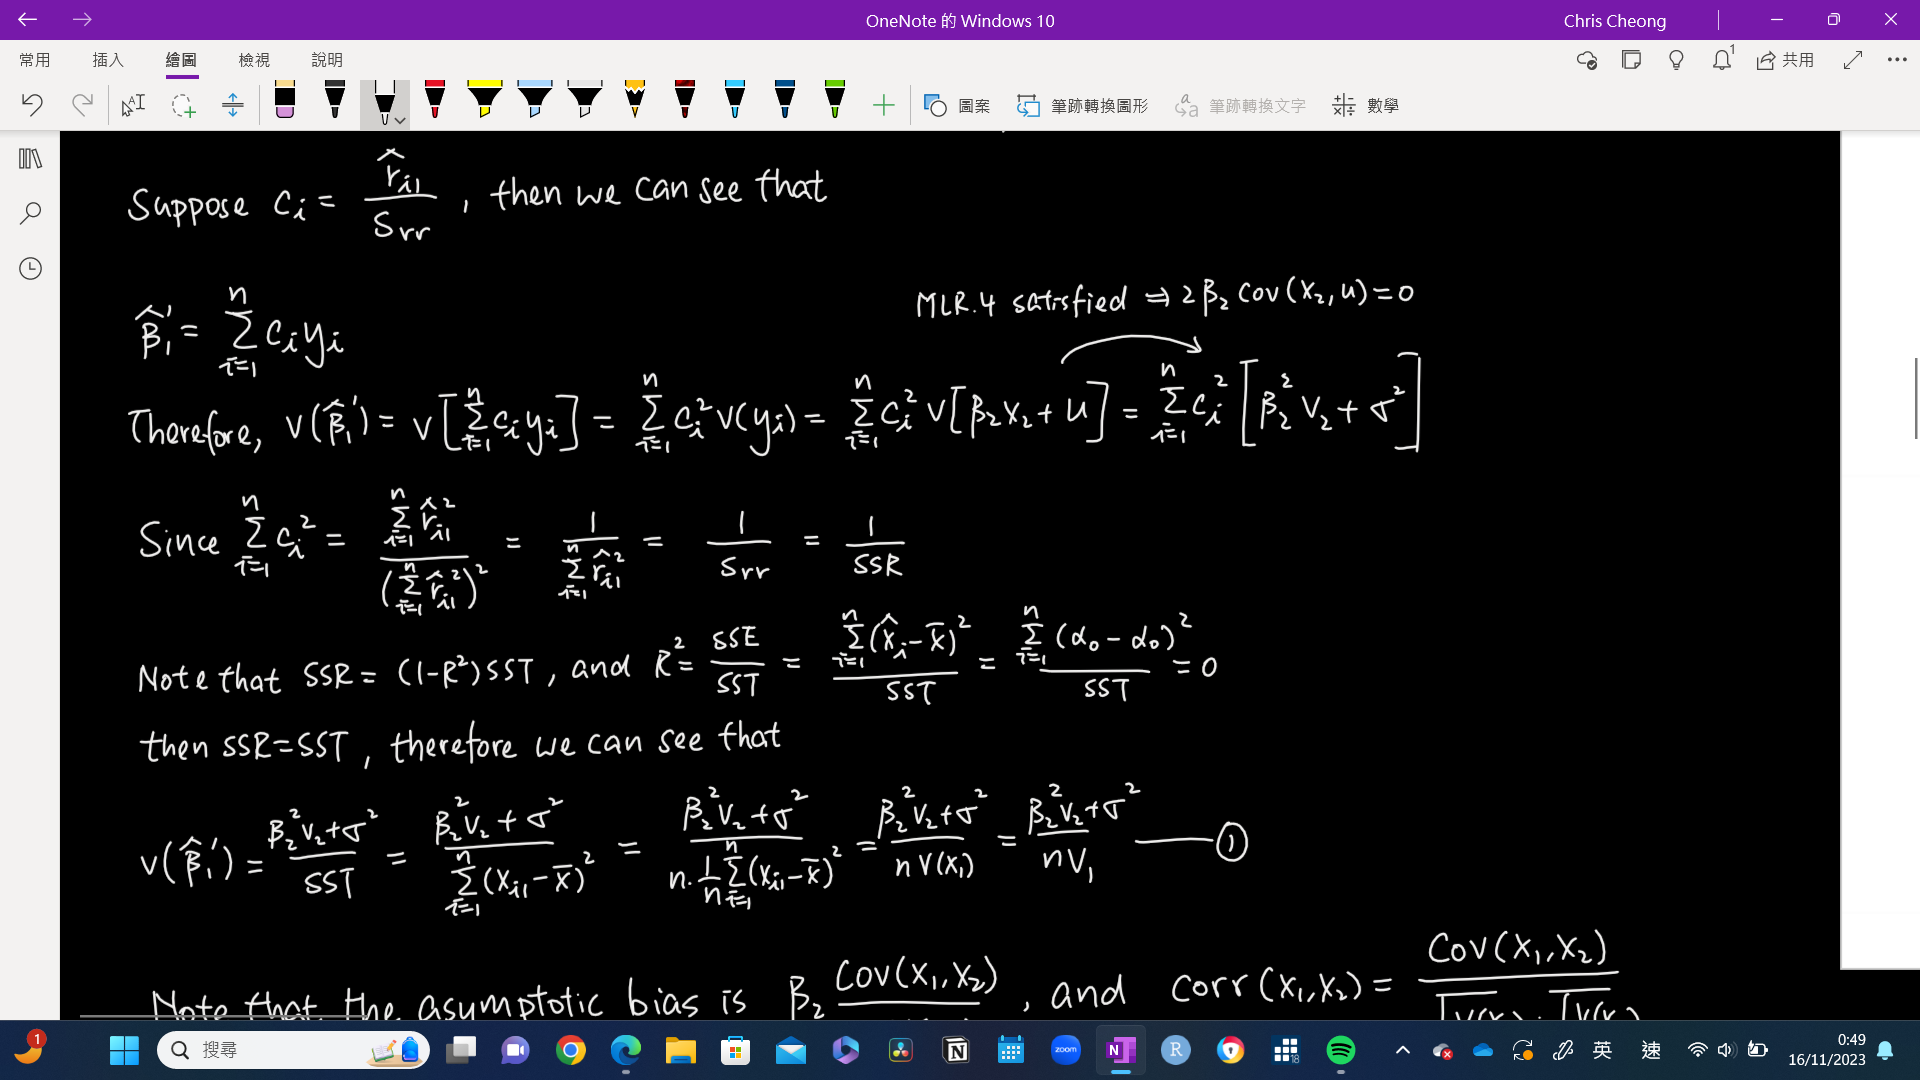 OneNote 的 Windows 10
Chris Cheong
常用 插入 繪圖 檢視 說明
1
共用
圖案 筆跡轉換圖形 筆跡轉換文字 數學
Suppose c_i = r̂_i1 / S_rr , then we can see that
MLR.4 satisfied ⇒ 2β_2 Cov(X_2, u) = 0
β̂_1' = Σ_{i=1}^n c_i y_i
Therefore, V(β̂_1') = V[Σ_{i=1}^n c_i y_i] = Σ_{i=1}^n c_i^2 V(y_i) = Σ_{i=1}^n c_i^2 V[β_2 X_2 + u] = Σ_{i=1}^n c_i^2 [β_2^2 V_2 + σ^2]
Since Σ_{i=1}^n c_i^2 = Σ_{i=1}^n r̂_i1^2 / (Σ_{i=1}^n r̂_i1^2)^2 = 1 / Σ_{i=1}^n r̂_i1^2 = 1 / S_rr = 1 / SSR
Note that SSR = (1-R^2)SST, and R^2 = SSE / SST = Σ_{i=1}^n (x̂_i - x̄)^2 / SST = Σ_{i=1}^n (α_0 - α_0)^2 / SST = 0
then SSR = SST, therefore we can see that
V(β̂_1') = (β_2^2 V_2 + σ^2) / SST = (β_2^2 V_2 + σ^2) / Σ_{i=1}^n (X_i1 - x̄)^2 = (β_2^2 V_2 + σ^2) / (n · 1/n Σ_{i=1}^n (X_i1 - x̄)^2) = (β_2^2 V_2 + σ^2) / (n V(X_1)) = (β_2^2 V_2 + σ^2) / (n V_1) —— ①
Note that the asymptotic bias is β_2 Cov(X_1, X_2) , and Corr(X_1, X_2) = Cov(X_1, X_2)
1
搜尋
zoom
N
R
18
英
速
0:49
16/11/2023